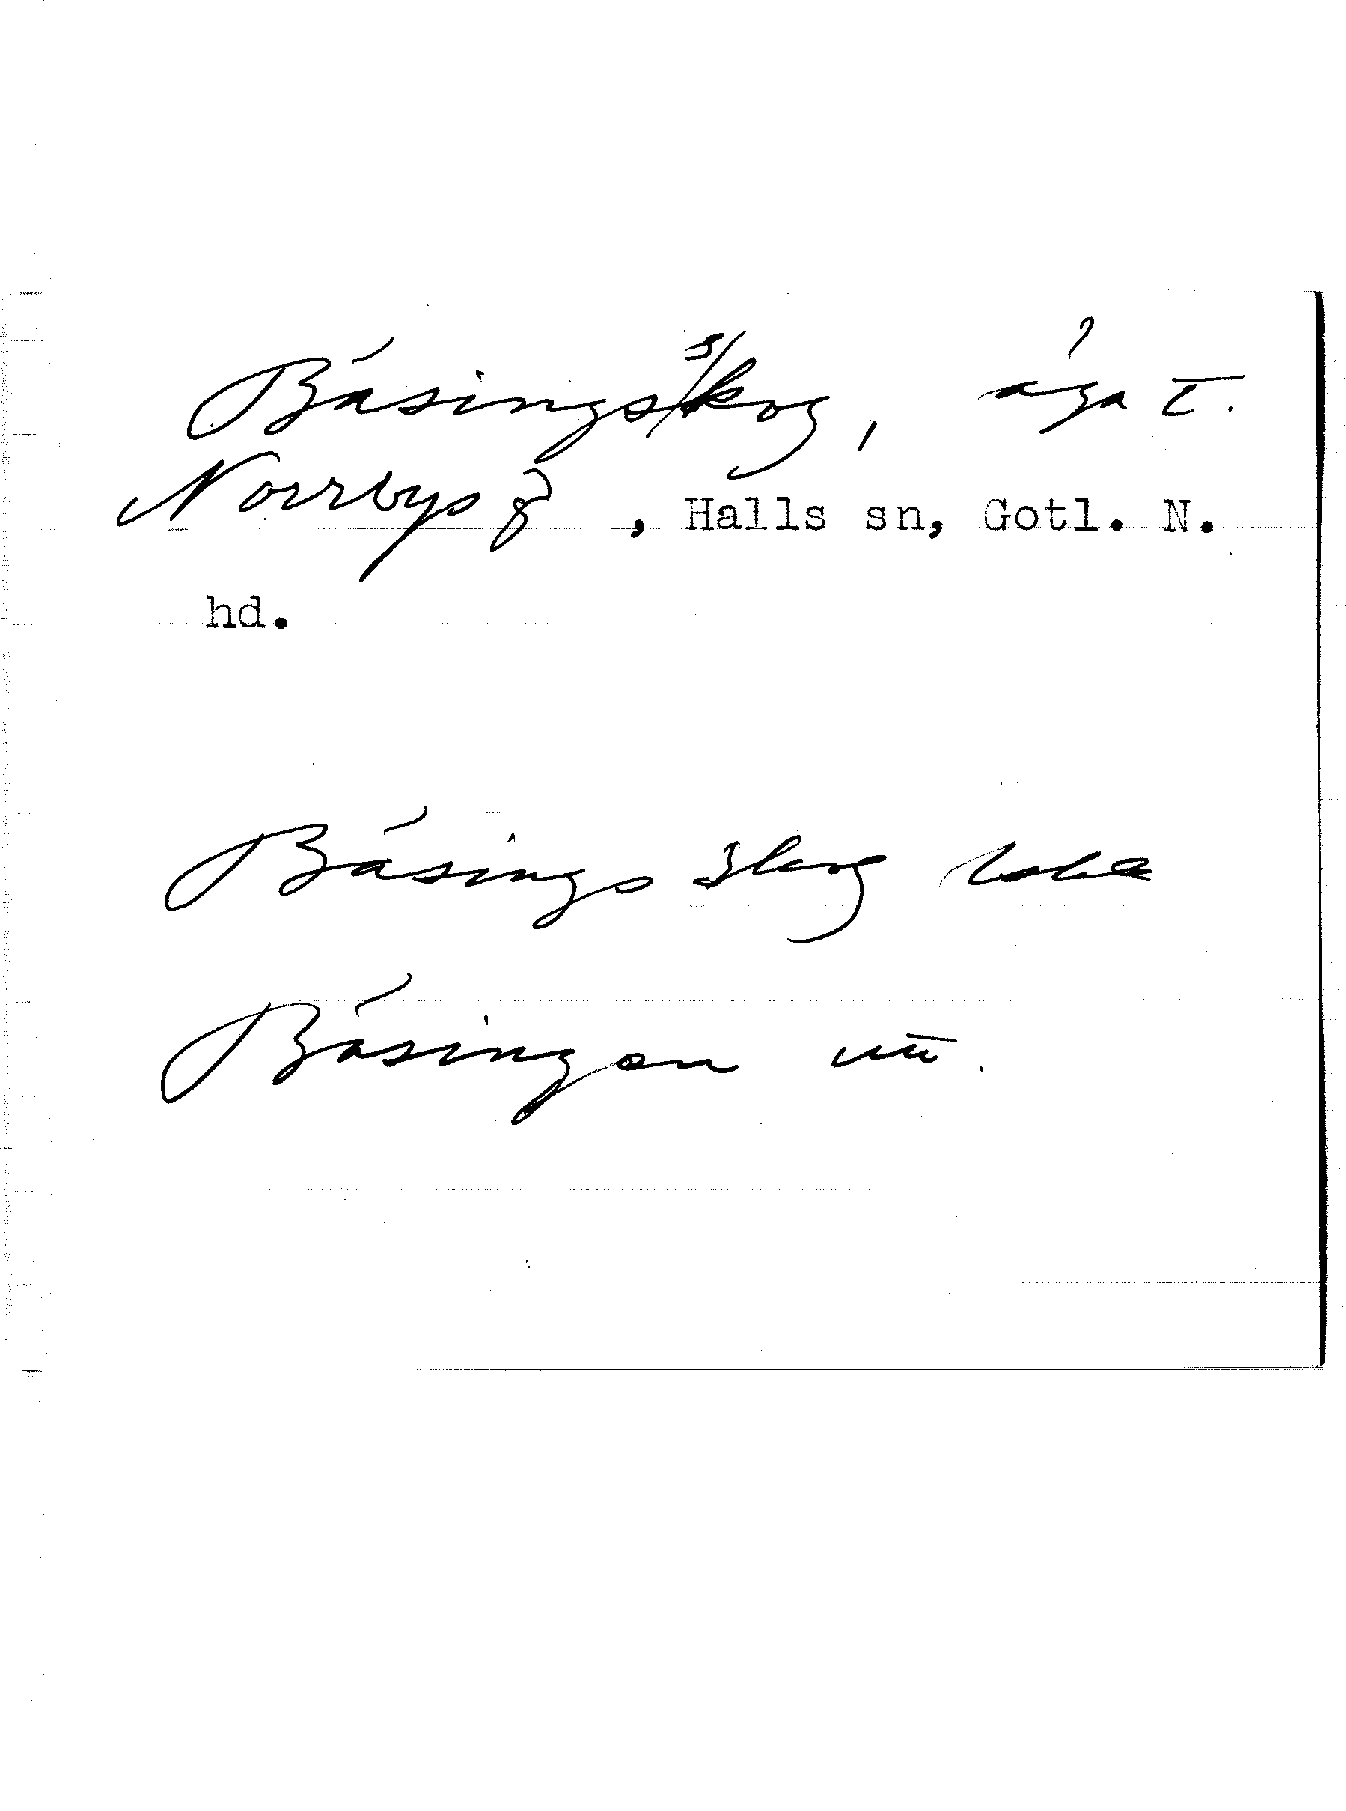 Båsingsskog, äga t.
Norrbys g, Halls sn, Gotl. N.
hd.
Båsings skog
Båsingen